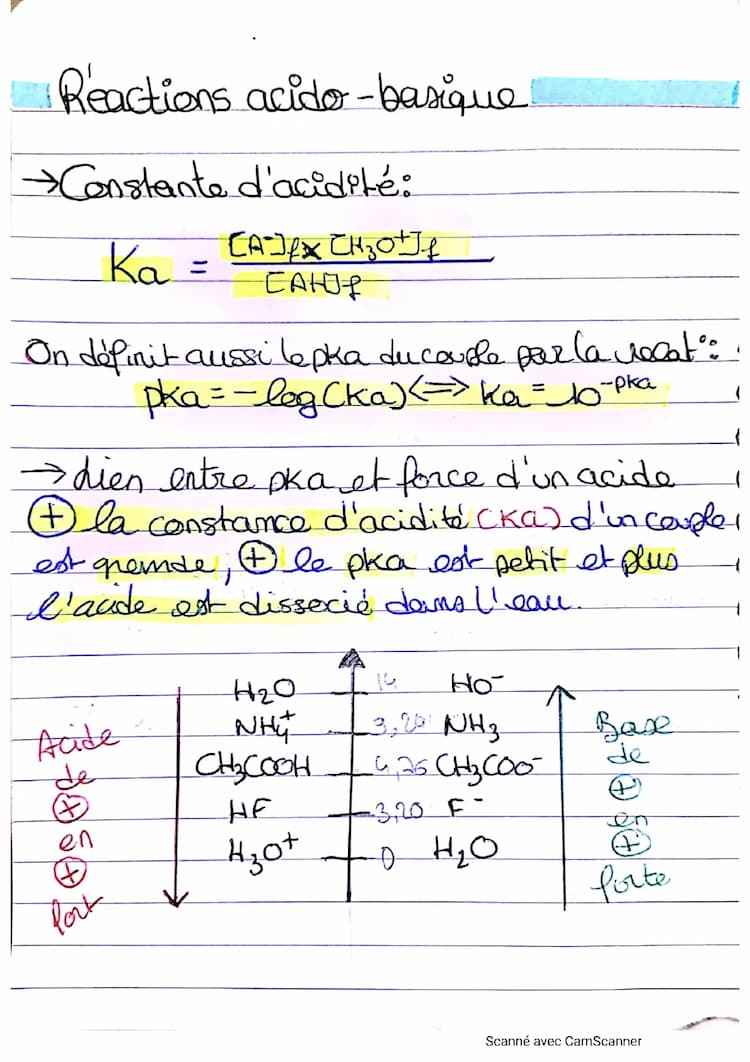 Réactions acido-basique
→Constante d'acidité:
Ka = [A-]f x [H3O+]f
[AH]f
On définit aussi le pka du couple par la :
pka = -log(Ka) <=> Ka = 10^-pka
→ Lien entre pka et force d'un acide
⊕ la constance d'acidité (Ka) d'un couple
est grande, ⊕ le pka est petit et plus
l'acide est dissocié dans l'eau.
H2O 14 HO-
NH4+ 9,20 NH3
CH3COOH 4,75 CH3COO-
HF 3,20 F-
H3O+ 0 H2O
Acide
de
⊕
en
⊕
fort
Base
de
⊕
en
⊕
forte
Scanné avec CamScanner